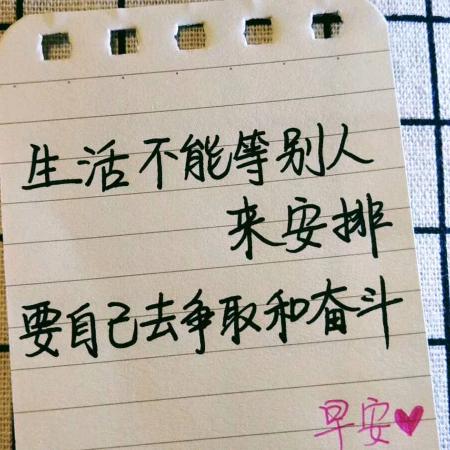 生活不能等别人
来安排
要自己去争取和奋斗
早安